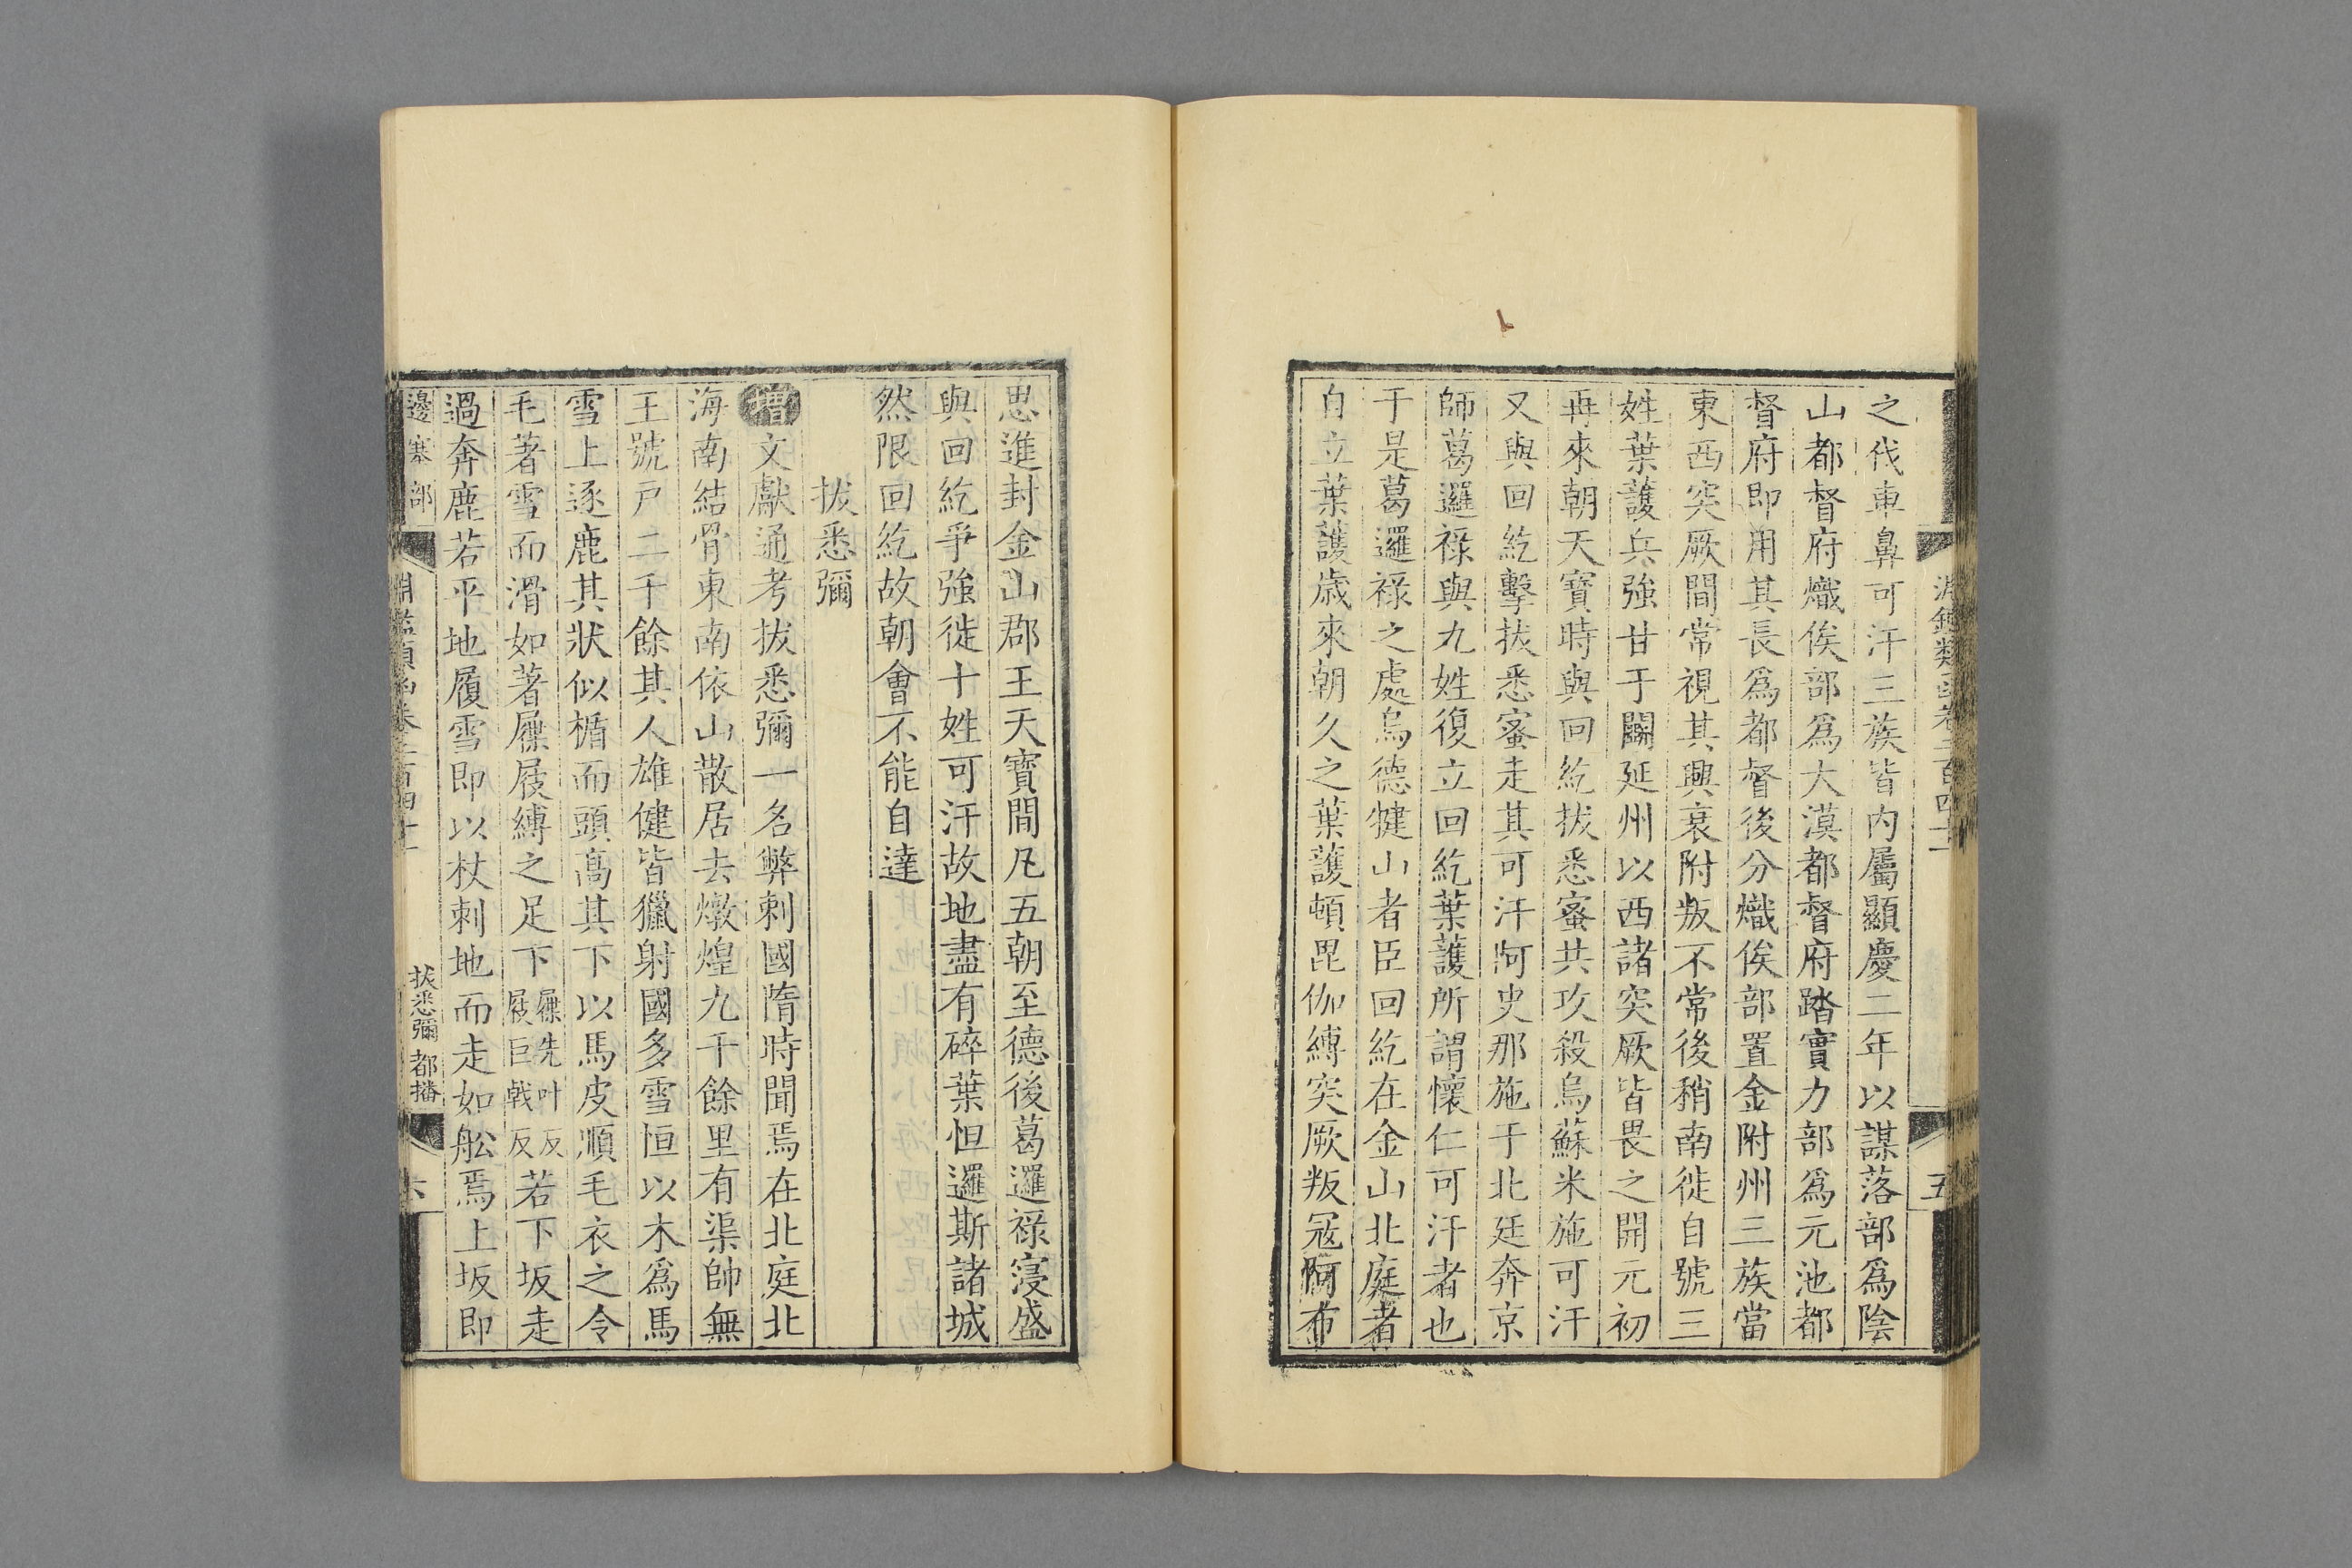 之伐車鼻可汗三族皆内屬顯慶二年以謀落部爲陰
山都督府熾俟部爲大漠都督府踏實力部爲元池都
督府即用其長爲都督後分熾俟部置金附州三族當
東西突厥間常視其興衰附叛不常後稍南徙自號三
姓葉護兵強甘于鬭延州以西諸突厥皆畏之開元初
再來朝天寶時與回紇拔悉蜜共攻殺烏蘇米施可汗
又與回紇擊拔悉蜜走其可汗阿史那施于北廷奔京
師葛邏祿與九姓復立回紇葉護所謂懷仁可汗者也
于是葛邏祿之處烏德犍山者臣回紇在金山北庭者
自立葉護歲來朝久之葉護頓毘伽縛突厥叛冦阿布
五
思進封金山郡王天寶間凡五朝至德後葛邏祿寖盛
與回紇爭強徙十姓可汗故地盡有碎葉怛邏斯諸城
然限回紇故朝會不能自達
拔悉彌
增文獻通考拔悉彌一名弊剌國隋時聞焉在北庭北
海南結骨東南依山散居去燉煌九千餘里有渠帥無
王號戸二千餘其人雄健皆獵射國多雪恒以木爲馬
雪上逐鹿其狀似楯而頭高其下以馬皮順毛衣之令
毛著雪而滑如著屧屐縛之足下屧先叶反屐巨戟反若下坂走
過奔鹿若平地履雪即以杖刺地而走如船焉上坂即
邊塞部
拔悉彌 都播
六